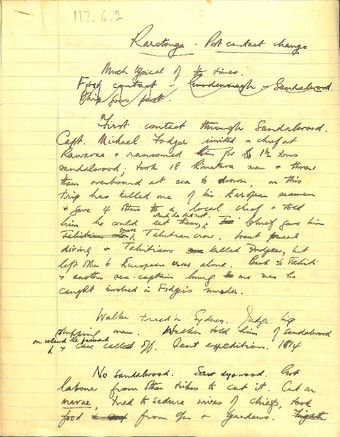 117.6.2
Rarotonga - Post contact change
Much typical of the times.
First contact - Goodenough - Sandalwood.
Ship
First contact through Sandalwood.
Capt. Michael Fodger invited a chief at
& ransomed him for 1½ tons
sandalwood, took 18 men & threw
them overboard at sea to drown. on this
trip has killed one of his European seamen
& gave 4 others to a local chief & told
him he could eat them, & he did not. Chief gave him
Tahitian crew. Went pearl
diving & Tahitians killed Fodger, but
left other 6 European crew alone. Back to Tahiti
& another sea-captain hung one man he
caught involved in Fodger's murder.
Walker tried in Sydney. Judge big
shipping man. Walker told him of Sandalwood
on island he passed
& case called off. Sent expedition. 1814
No Sandalwood. Saw dyewood. Got
labour from other tribes to cut it. Cut on
marae, tried to seduce wives of chiefs, took
food from &  gardens.